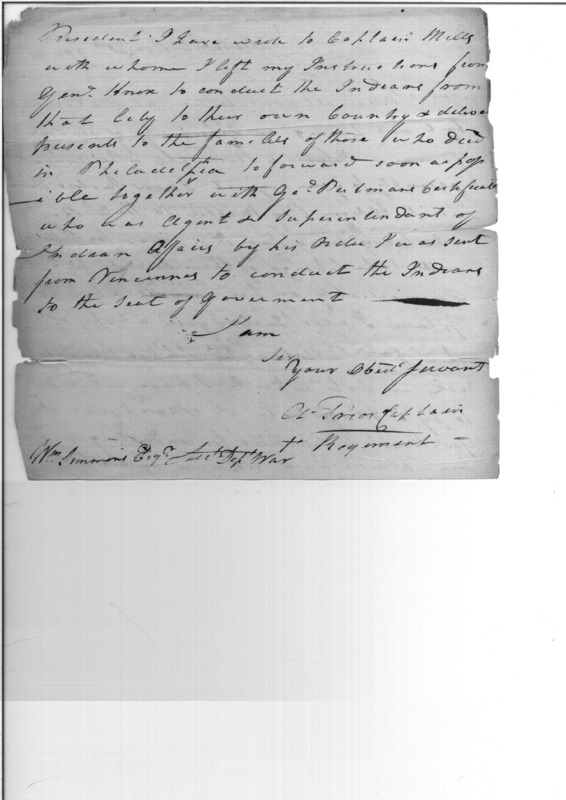 President I have wrote to Captain Mills
with whome I left my Instructions from
Genl. Knox to conduct the Indians from
that City to their own Country & deliver
presents to the families of those who died
in Philadelphia to forward soon as poss
ible together with Gel. Putmans Certificate
who was Agent & Superintendant of
Indian Affairs by his order I was sent
from Vincennes to conduct the Indians
to the Seat of Goverment
I am
Sir
Your Obedt. servant
Ab. Prior Captain
Regiment
Wm. Simmons Esqr. Acct. Dept. War